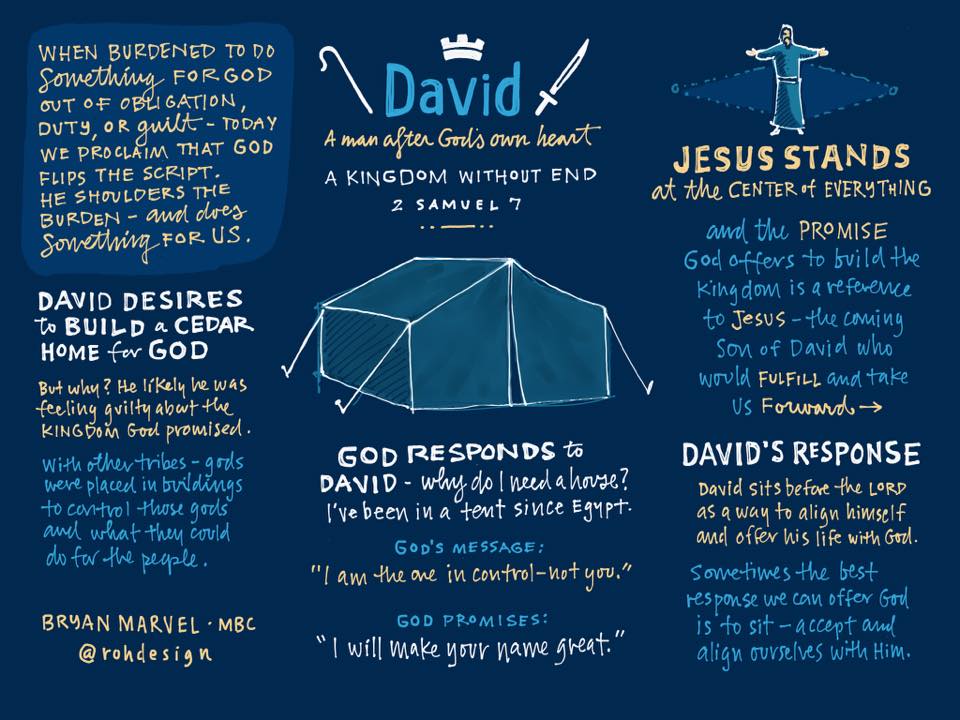 WHEN BURDENED TO DO
Something FOR GOD
OUT OF OBLIGATION,
DUTY, OR guilt - TODAY
WE PROCLAIM THAT GOD
FLIPS THE SCRIPT.
HE SHOULDERS THE
BURDEN - and does
Something FOR US.
DAVID DESIRES
to BUILD a CEDAR
HOME for GOD
But why? He likely he was
feeling guilty about the
KINGDOM God promised.
With other tribes - gods
were placed in buildings
to control those gods
and what they could
do for the people.
BRYAN MARVEL · MBC
@rohdesign
David
A man after God's own heart
A KINGDOM WITHOUT END
2 SAMUEL 7
GOD RESPONDS to
DAVID - why do I need a house?
I've been in a tent since Egypt.
GOD'S MESSAGE:
"I am the one in control-not you."
GOD PROMISES:
"I will make your name great."
JESUS STANDS
at the CENTER of EVERYTHING
and the PROMISE
God offers to build the
Kingdom is a reference
to Jesus - the coming
Son of David who
would FULFILL and take
us Forward →
DAVID'S RESPONSE
David sits before the LORD
as a way to align himself
and offer his life with God.
Sometimes the best
response we can offer God
is to sit - accept and
align ourselves with Him.